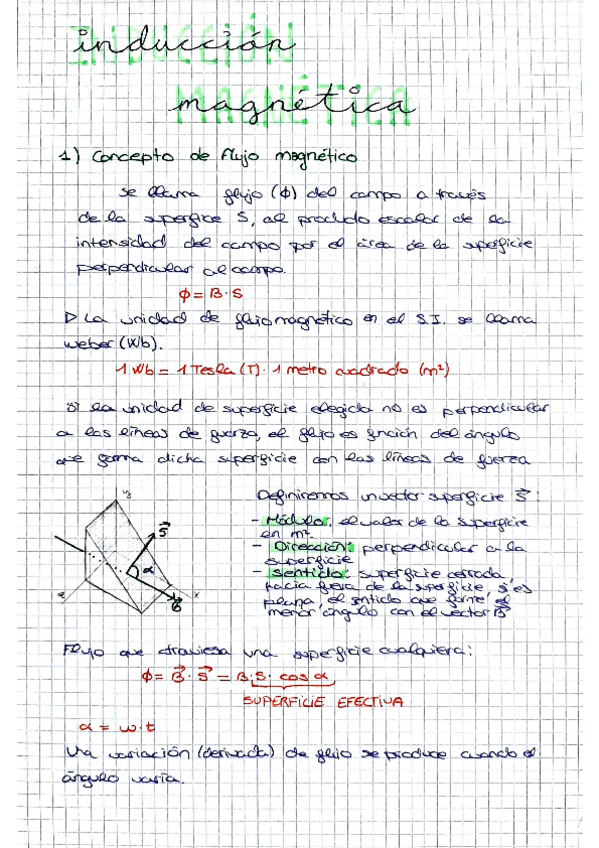 inducción
INDUCCIÓN
magnética
MAGNÉTICA
1) Concepto de flujo magnético
Se llama flujo (ϕ) del campo a través
de la superfice S, al producto escalar de la
intensidad del campo por el área de la superficie
perpendicular al campo.
ϕ = B · S
▷ La unidad de flujo magnético en el S.I. se llama
weber (Wb).
1 Wb = 1 Tesla (T) · 1 metro cuadrado (m²)
Si la unidad de superficie elegida no es perpendicular
a las líneas de fuerza, el flujo es función del ángulo
que forma dicha superficie con las líneas de fuerza
Definiremos un vector superficie S⃗:
- Módulo: el valor de la superficie
en m².
- Dirección: perpendicular a la
superficie
- Sentido: superficie cerrada,
hacia fuera de la superficie, si es
plana, el sentido que forme el
menor ángulo con el vector B⃗
y
S⃗
α
B⃗
z
x
Flujo que atraviesa una superficie cualquiera:
ϕ = B⃗ · S⃗ = B · S · cos α
SUPERFICIE EFECTIVA
α = w · t
Una variación (derivada) de flujo se produce cuando el
ángulo varía.